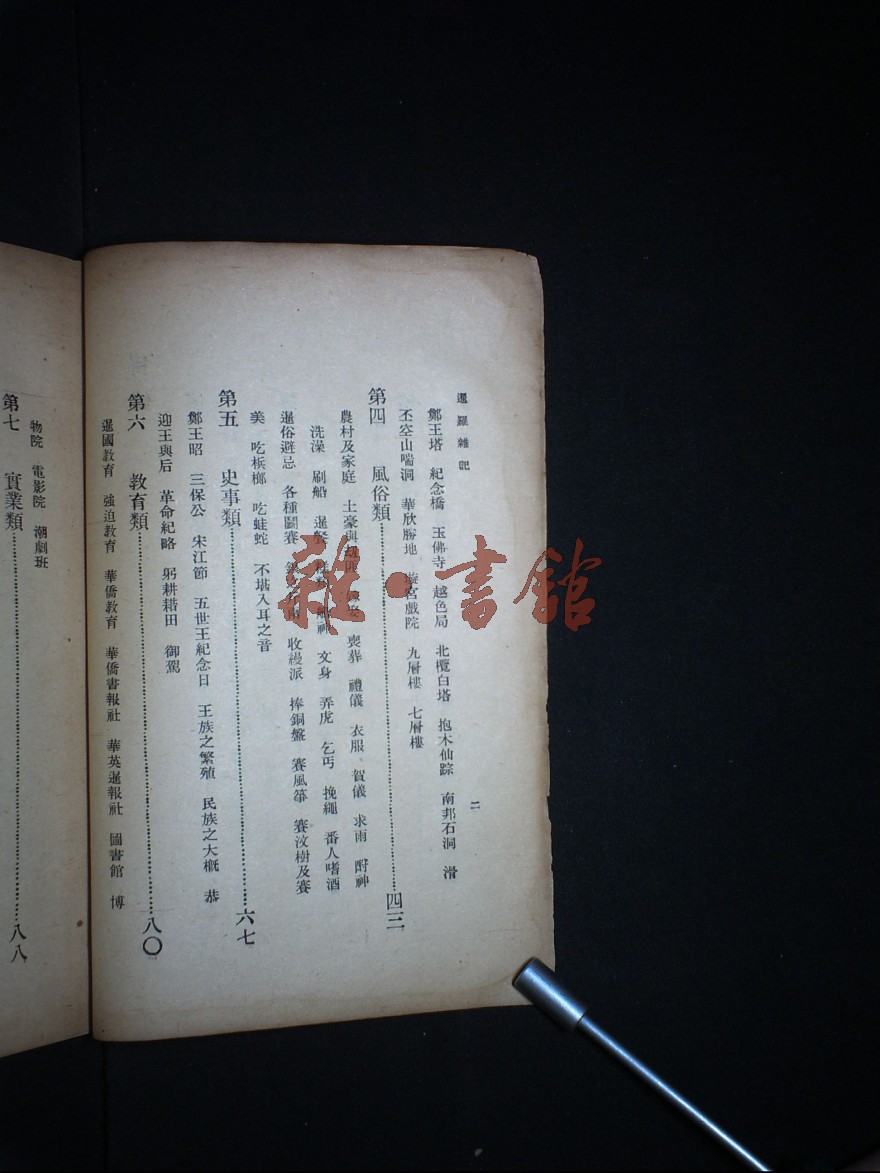 暹羅雜記
二
鄭王塔 紀念橋 玉佛寺 越色局 北欖白塔 抱木仙踪 南邦石洞 滑
丕空山喘洞 華欣勝地 璇宮戲院 九層樓 七層樓
第四 風俗類……四三
農村及家庭 土豪與 喪葬 禮儀 衣服 賀儀 求雨 酧神
洗澡 刷船 暹 文身 弄虎 乞丐 挽繩 番人嗜酒
暹俗避忌 各種鬪賽 收縵派 捧銅盤 賽風箏 賽汶樹及賽
美 吃梹榔 吃蛙蛇 不堪入耳之音
第五 史事類……六七
鄭王昭 三保公 宋江節 五世王紀念日 王族之繁殖 民族之大槪 恭
迎王與后 革命紀略 躬耕耤田 御駕
第六 教育類……八〇
暹國教育 強迫教育 華僑教育 華僑書報社 華英暹報社 圖書館 博
物院 電影院 潮劇班
第七 實業類……八八
雜·書館